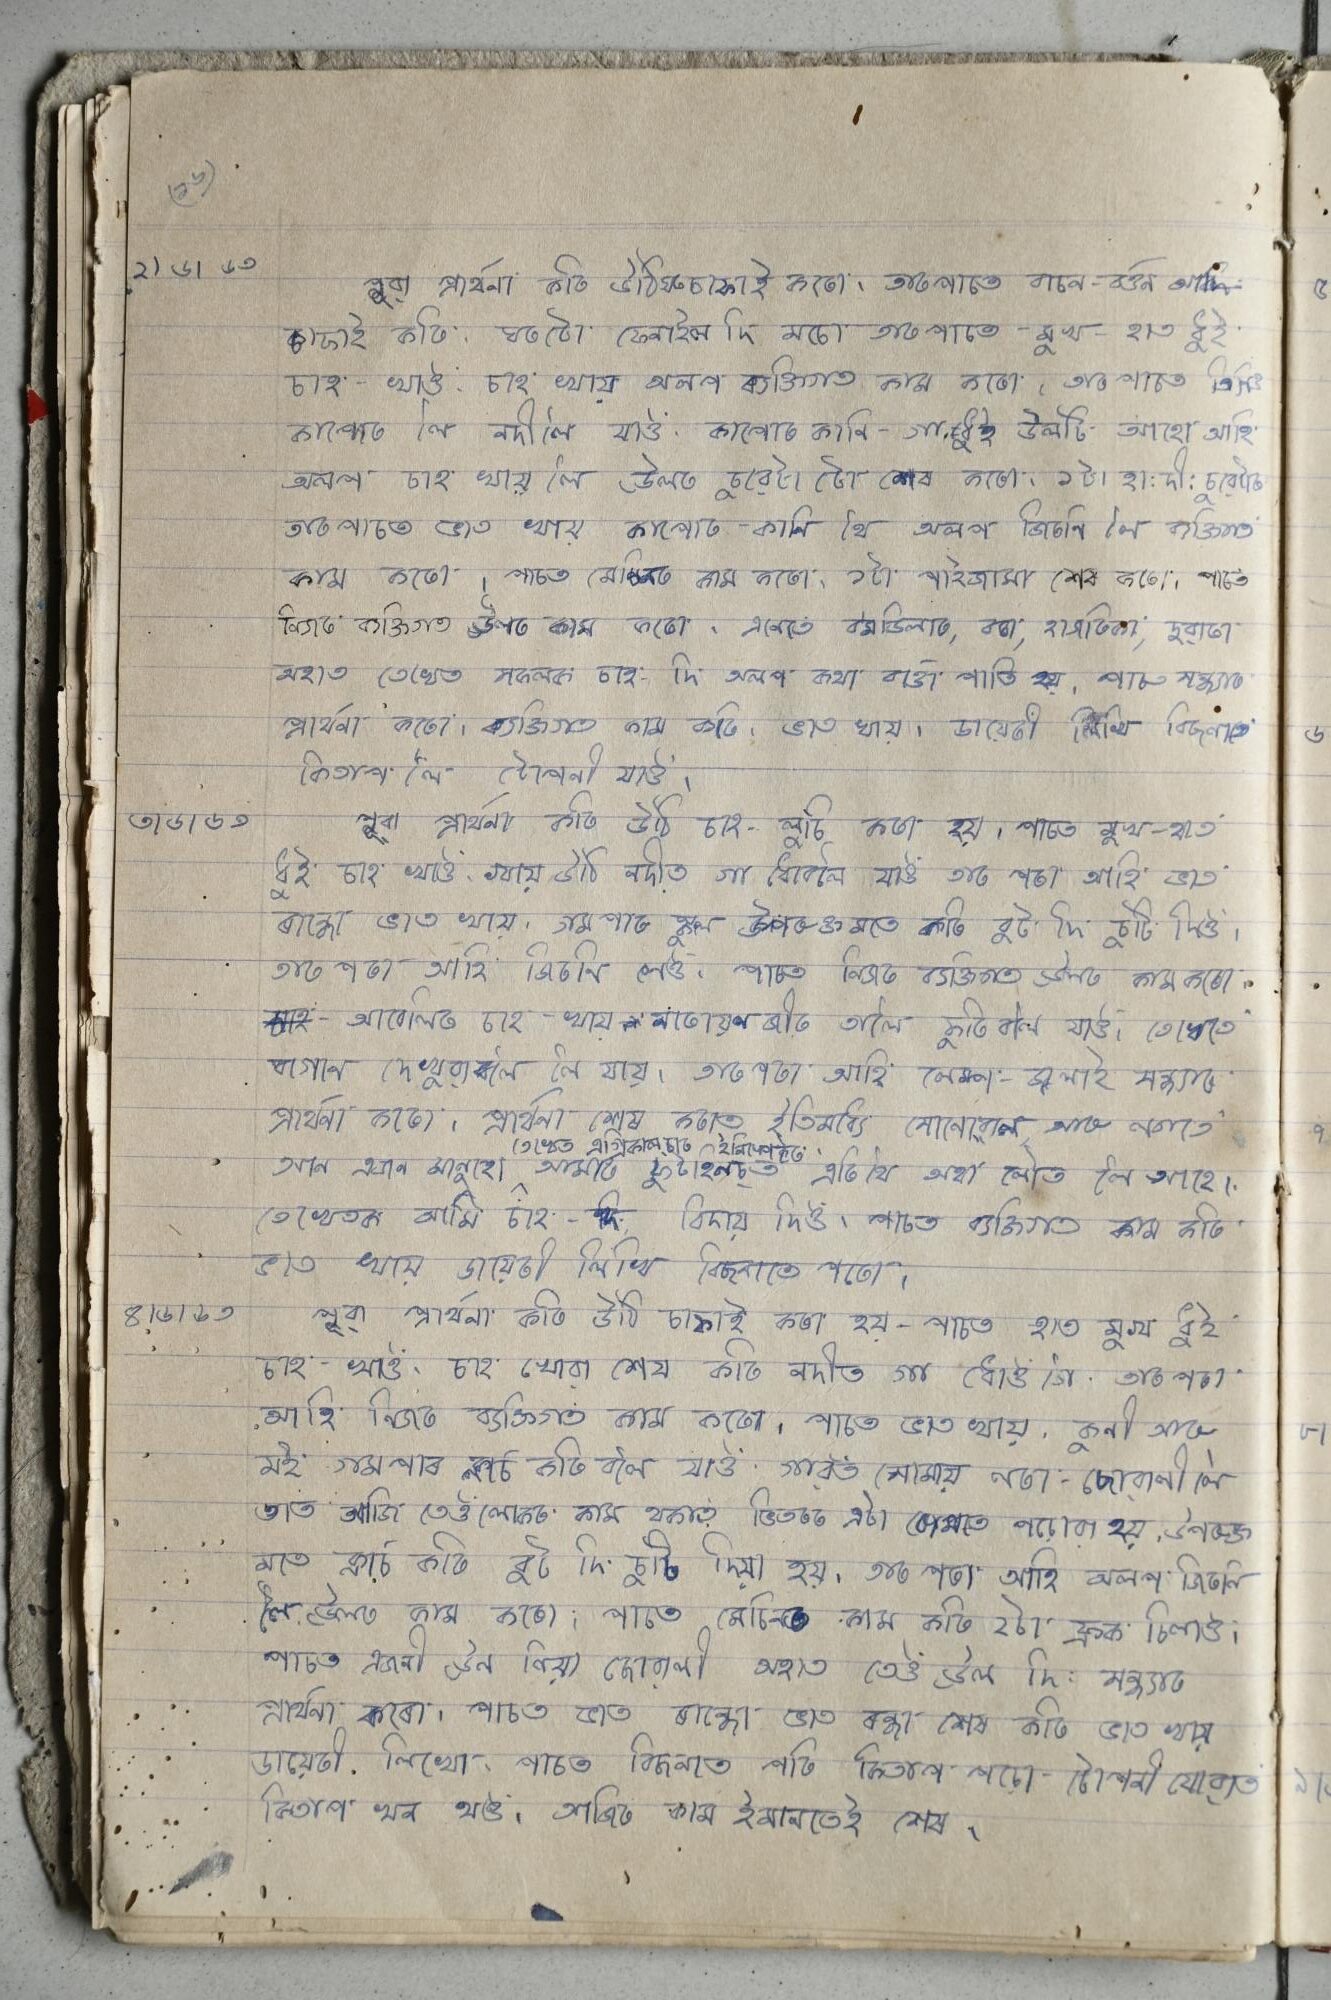 (২৬)
২।৬।৬৩ পুৱা প্ৰাৰ্থনা কৰি উঠি ঘৰ চাফাই কৰো। তাৰপাচত বাচন-বৰ্ত্তন আদি
চাফাই কৰি। ঘৰটো ফেনাইল দি মচো তাৰপাচত মুখ-হাত ধুই
চাহ-খাওঁ। চাহ খায় অলপ ব্যক্তিগত কাম কৰো। তাৰ পাচত
কাপোৰ লৈ নদীলৈ যাওঁ। কাপোৰ কানি-গা ধুই উলটি আহো আহি
অলপ চাহ খায় লৈ উলৰ চুৱেটাৰ টো শেষ কৰো। ১টা হা:দী: চুৱেটাৰ
তাৰপাচত ভাত খায় কাপোৰ-কানি থৈ অলপ জিৰণি লৈ ব্যক্তিগত
কাম কৰো। পাচত মেচিনত কাম কৰো। ১টা পাইজামা শেষ কৰো। পাচত
নিজৰ ব্যক্তিগত উলৰ কাম কৰো। এনেতে বমডিলাৰ, বৰা, হাজৰিকা, দুৱাৰা
অহাত তেখেত সকলক চাহ দি অলপ কথা বাৰ্ত্তা পাতি হয়। পাচত সন্ধ্যাৰ
প্ৰাৰ্থনা কৰো। ব্যক্তিগত কাম কৰি। ভাত খায়। ডায়েৰী লিখি বিছনাতে
কিতাপ লৈ টোপনী যাওঁ।
৩।৬।৬৩ পুৱা প্ৰাৰ্থনা কৰি উঠি চাহ-লুচি কৰা হয়। পাচত মুখ-হাত
ধুই চাহ খাওঁ। খায় উঠি নদীত গা ধোবলৈ যাওঁ তাৰ পৰা আহি ভাত
ৰান্ধো ভাত খায়। গমপাৰ স্কুল উপৰুক্ত মতে কৰি বুট দি চুটি দিওঁ।
তাৰ পৰা আহি জিৰনি লওঁ। পাচত নিজৰ ব্যক্তিগত উলৰ কাম কৰো।
আবেলিৰ চাহ-খায় নাৰায়ণ জীৰ তালৈ ফুৰিবলৈ যাওঁ। তেখেতে
বাগান দেখুৱাবলৈ লৈ যায়। তাৰ পৰা আহি লেম্প-জ্বলাই সন্ধ্যাৰ
প্ৰাৰ্থনা কৰো। প্ৰাৰ্থনা শেষ কৰাত ইতিমধ্যে সোনোৱাল আৰু লগতে
তেখেত এগ্ৰিকালচাৰ
আন এজন মানুহো আমাৰ এৰি থৈ অহা লৈ আহে।
তেখেতক আমি চাহ-দি বিদায় দিওঁ। পাচত ব্যক্তিগত কাম কৰি
ভাত খায় ডায়েৰী লিখি বিছনাতে পৰো।
৪।৬।৬৩ পুৱা প্ৰাৰ্থনা কৰি উঠি চাফাই কৰা হয়-পাচত হাত মুখ ধুই
চাহ-খাওঁ। চাহ খোৱা শেষ কৰি নদীত গা ধোওঁ গৈ। তাৰ পৰা
আহি নিজৰ ব্যক্তিগত কাম কৰো। পাচত ভাত খায়। কুনী আৰু
মই গমপাৰ ক্লাচ কৰিবলৈ যাওঁ। গাৱঁত সোমায় পৰা-ছোৱালী লৈ
ভাত আজি তেওঁলোকৰ কাম থকাত ভিতৰত এটা পঢ়োৱা হয়। উপৰুক্ত
মতে ক্লাচ কৰি বুট দি চুটি দিয়া হয়। তাৰ পৰা আহি অলপ জিৰনি
লৈ উলৰ কাম কৰো। পাচত মেচিনত কাম কৰি ২টা ফ্ৰক চিলাওঁ।
পাচত এজনী উল নিয়া ছোৱালী অহাত তেওঁ উল দি। সন্ধ্যাৰ
প্ৰাৰ্থনা কৰো। পাচত ভাত ৰান্ধো ভাত ৰন্ধা শেষ কৰি ভাত খায়
ডায়েৰী। লিখো। পাচত বিছনাতে পৰি কিতাপ পঢ়ো-টোপনী যোৱাত
কিতাপ খন থওঁ। আজিৰ কাম ইমানতেই শেষ।